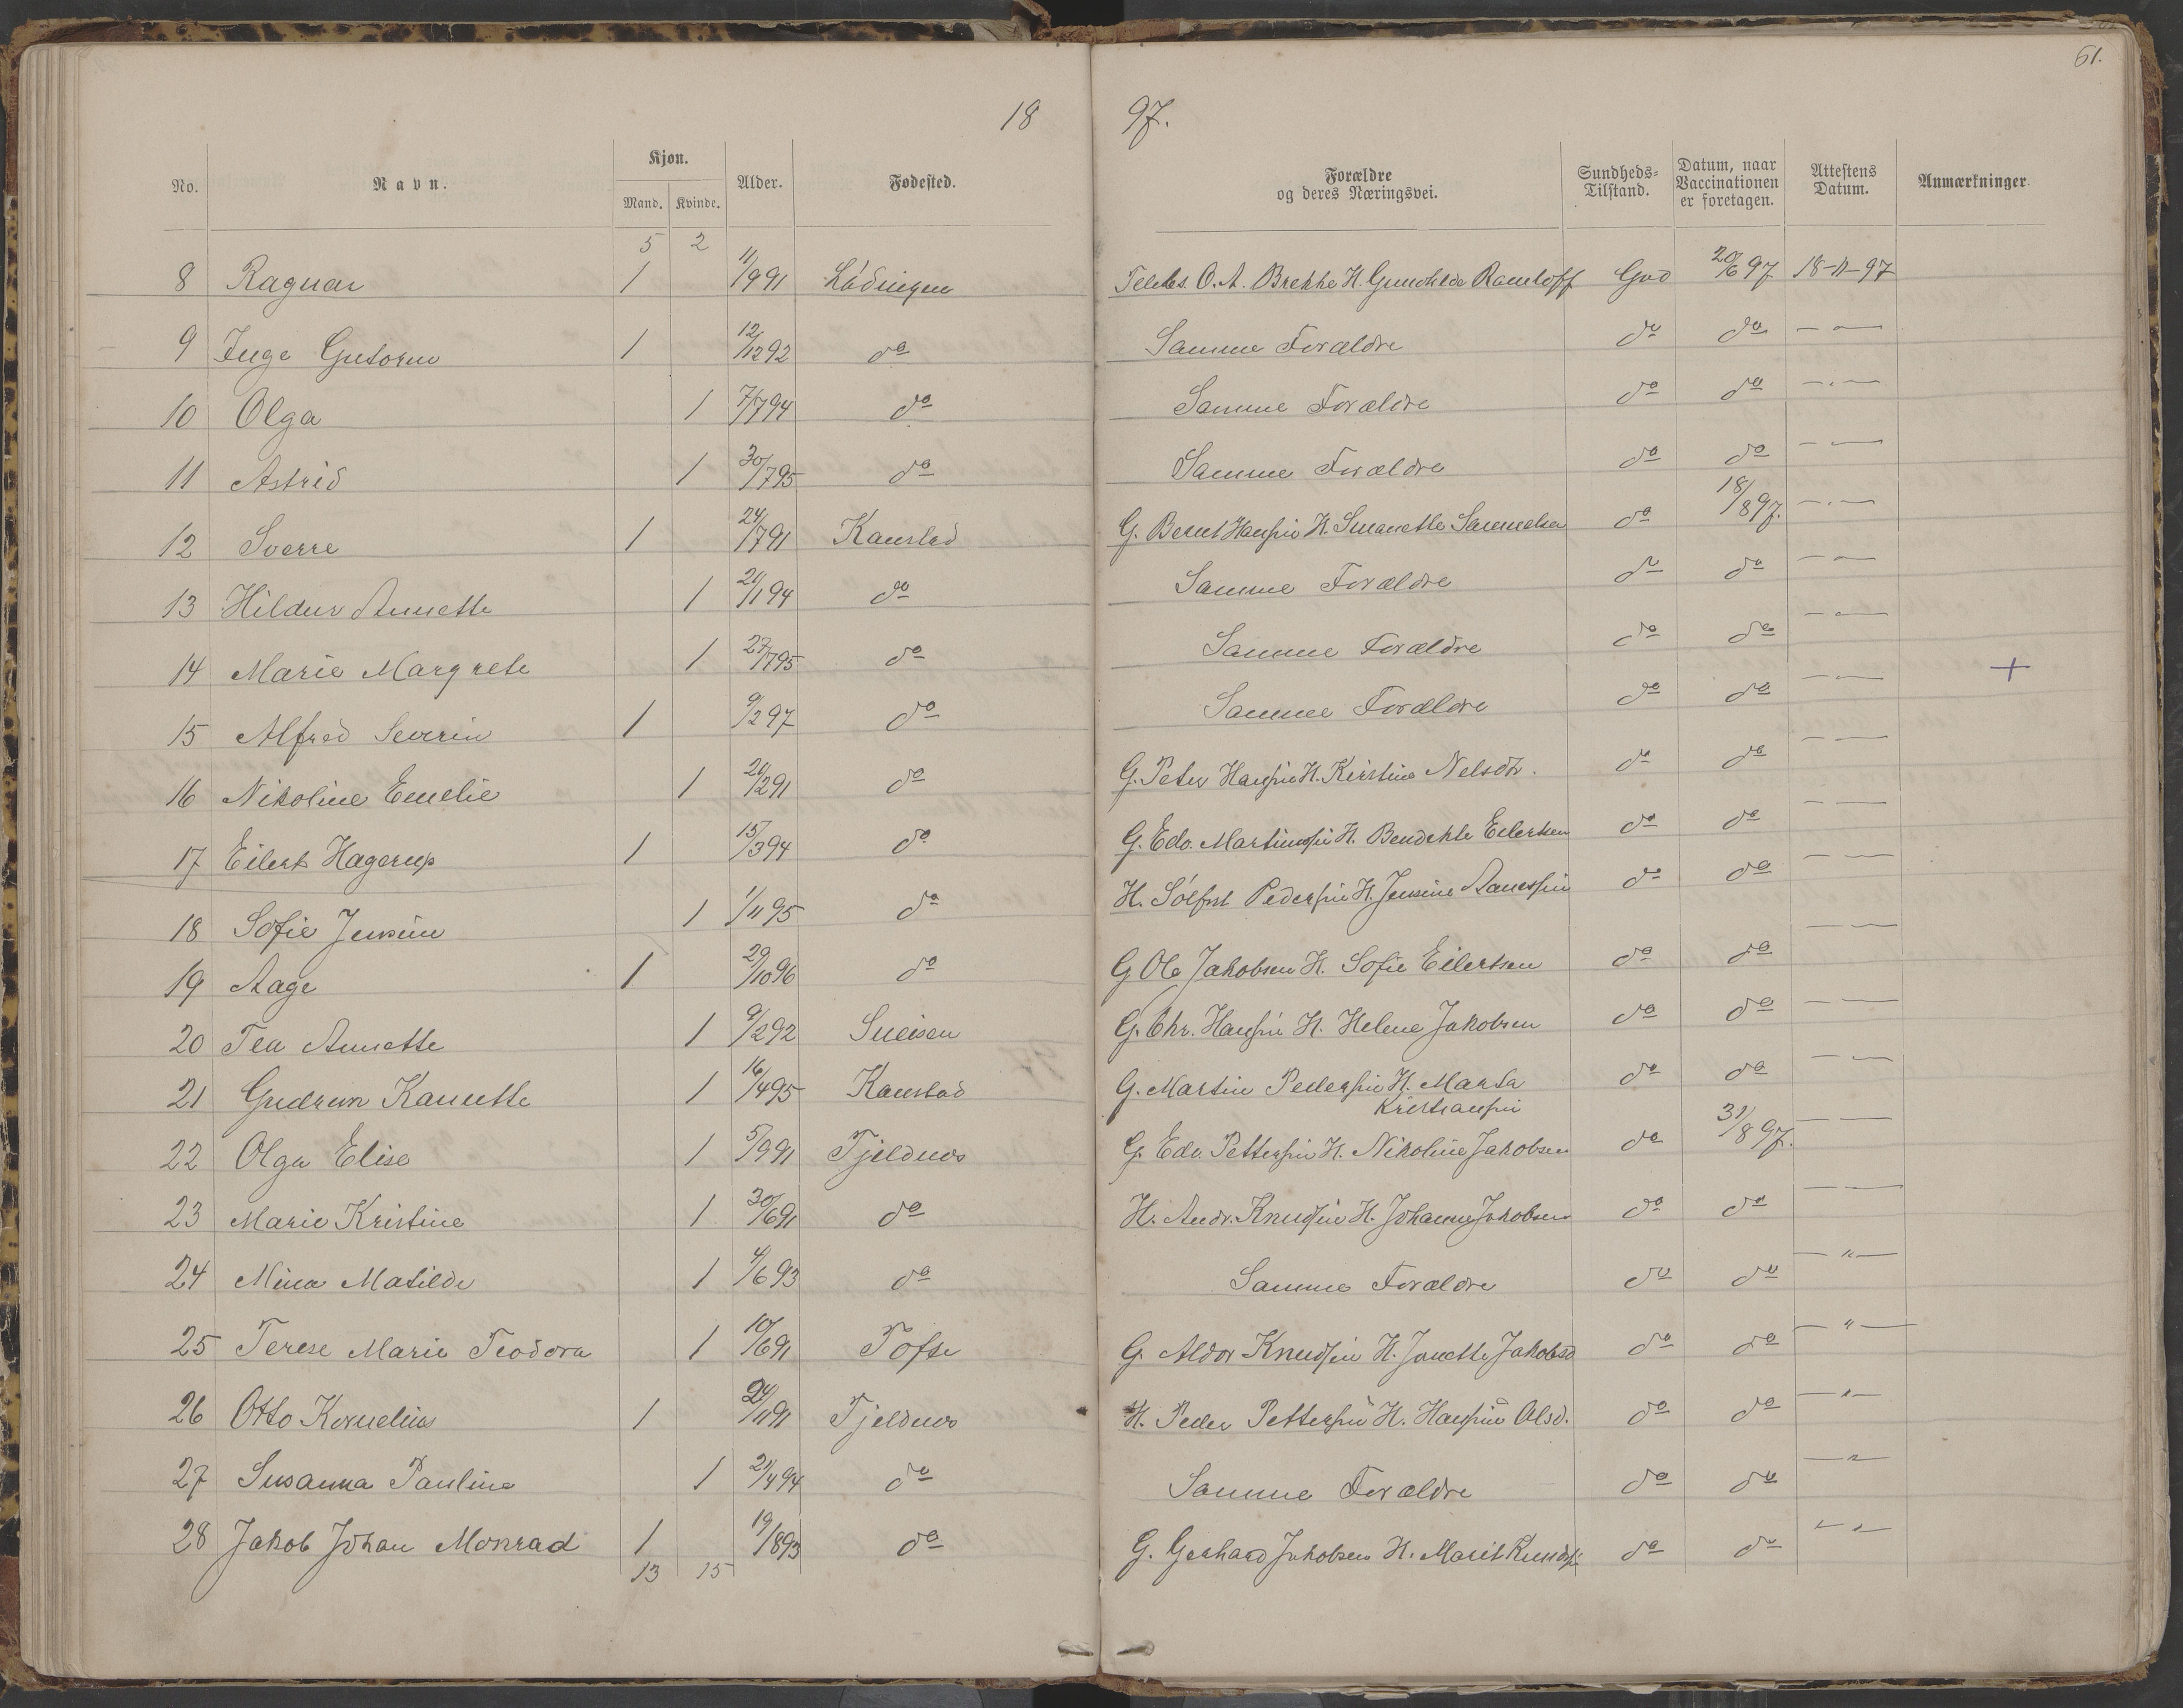 61.
18 97.
No. Navn. Kjøn. Mand. Kvinde. Alder. Fødested. Forældre og deres Næringsvei. Sundheds-Tilstand. Datum, naar Vaccinationen er foretagen. Attestens Datum. Anmærkninger
5 2
8 Ragnar 1 11/9 91 Lødingen Telebs. O. A. Brekke H. Gunhilda Ramloff God 20/6 97 18-11-97
9 Inge Gutorm 1 12/12 92 do Samme Forældre do do — " —
10 Olga 1 7/7 94 do Samme Forældre do do — " —
11 Astrid 1 30/7 95 do Samme Forældre do do — " —
12 Sverre 1 24/7 91 Kanstad G. Bernt Hansen H. Smanette Samuelsen do 18/8 97. — " —
13 Hildur Annette 1 21/1 94 do Samme Forældre do do — " —
14 Marie Margrete 1 27/7 95 do Samme Forældre do do — " —
15 Alfred Severin 1 9/2 97 do Samme Forældre do do — " — +
16 Nikoline Emelie 1 20/2 91 do G. Peter Hansen H. Kirstine Nelsdtr. do do — —
17 Eilert Hagerup 1 15/3 94 do G. Edv. Martinussen H. Bendikte Eilertsen do do — —
18 Sofie Jensine 1 1/11 95 do H. Sølfest Pedersen H. Jensine Aanessen do do — —
19 Aage 1 29/10 96 do G Ole Jakobsen H. Sofie Eilertsen do do — —
20 Tea Annette 1 9/2 92 Sneisen G. Chr. Hansen H. Helene Jakobsen do do — —
21 Gudrun Kanutte 1 16/4 95 Kanstad G. Martin Pedersen H. Marta Kristiansen do do — —
22 Olga Elise 1 5/9 91 Tjeldnes G. Edv. Pettersen H. Nikoline Jakobsen do 31/8 97. — —
23 Marie Kristine 1 30/6 91 do H. Andr. Knudsen H. Johanne Jakobsen do do — —
24 Mina Matilde 1 4/6 93 do Samme Forældre do do — " —
25 Terese Marie Teodora 1 10/6 91 Tofte G. Aldor Knudsen H. Janette Jakobsd do do — " —
26 Otto Kornelius 1 24/11 91 Tjeldnes H. Peder Pettersen H. Hansine Olsd. do do — " —
27 Susanna Pauline 1 21/4 94 do Samme Forældre do do — " —
28 Jakob Johan Monrad 1 19/8 93 do G. Gerhard Jakobsen H. Marit Knudsen do do — " —
13 15